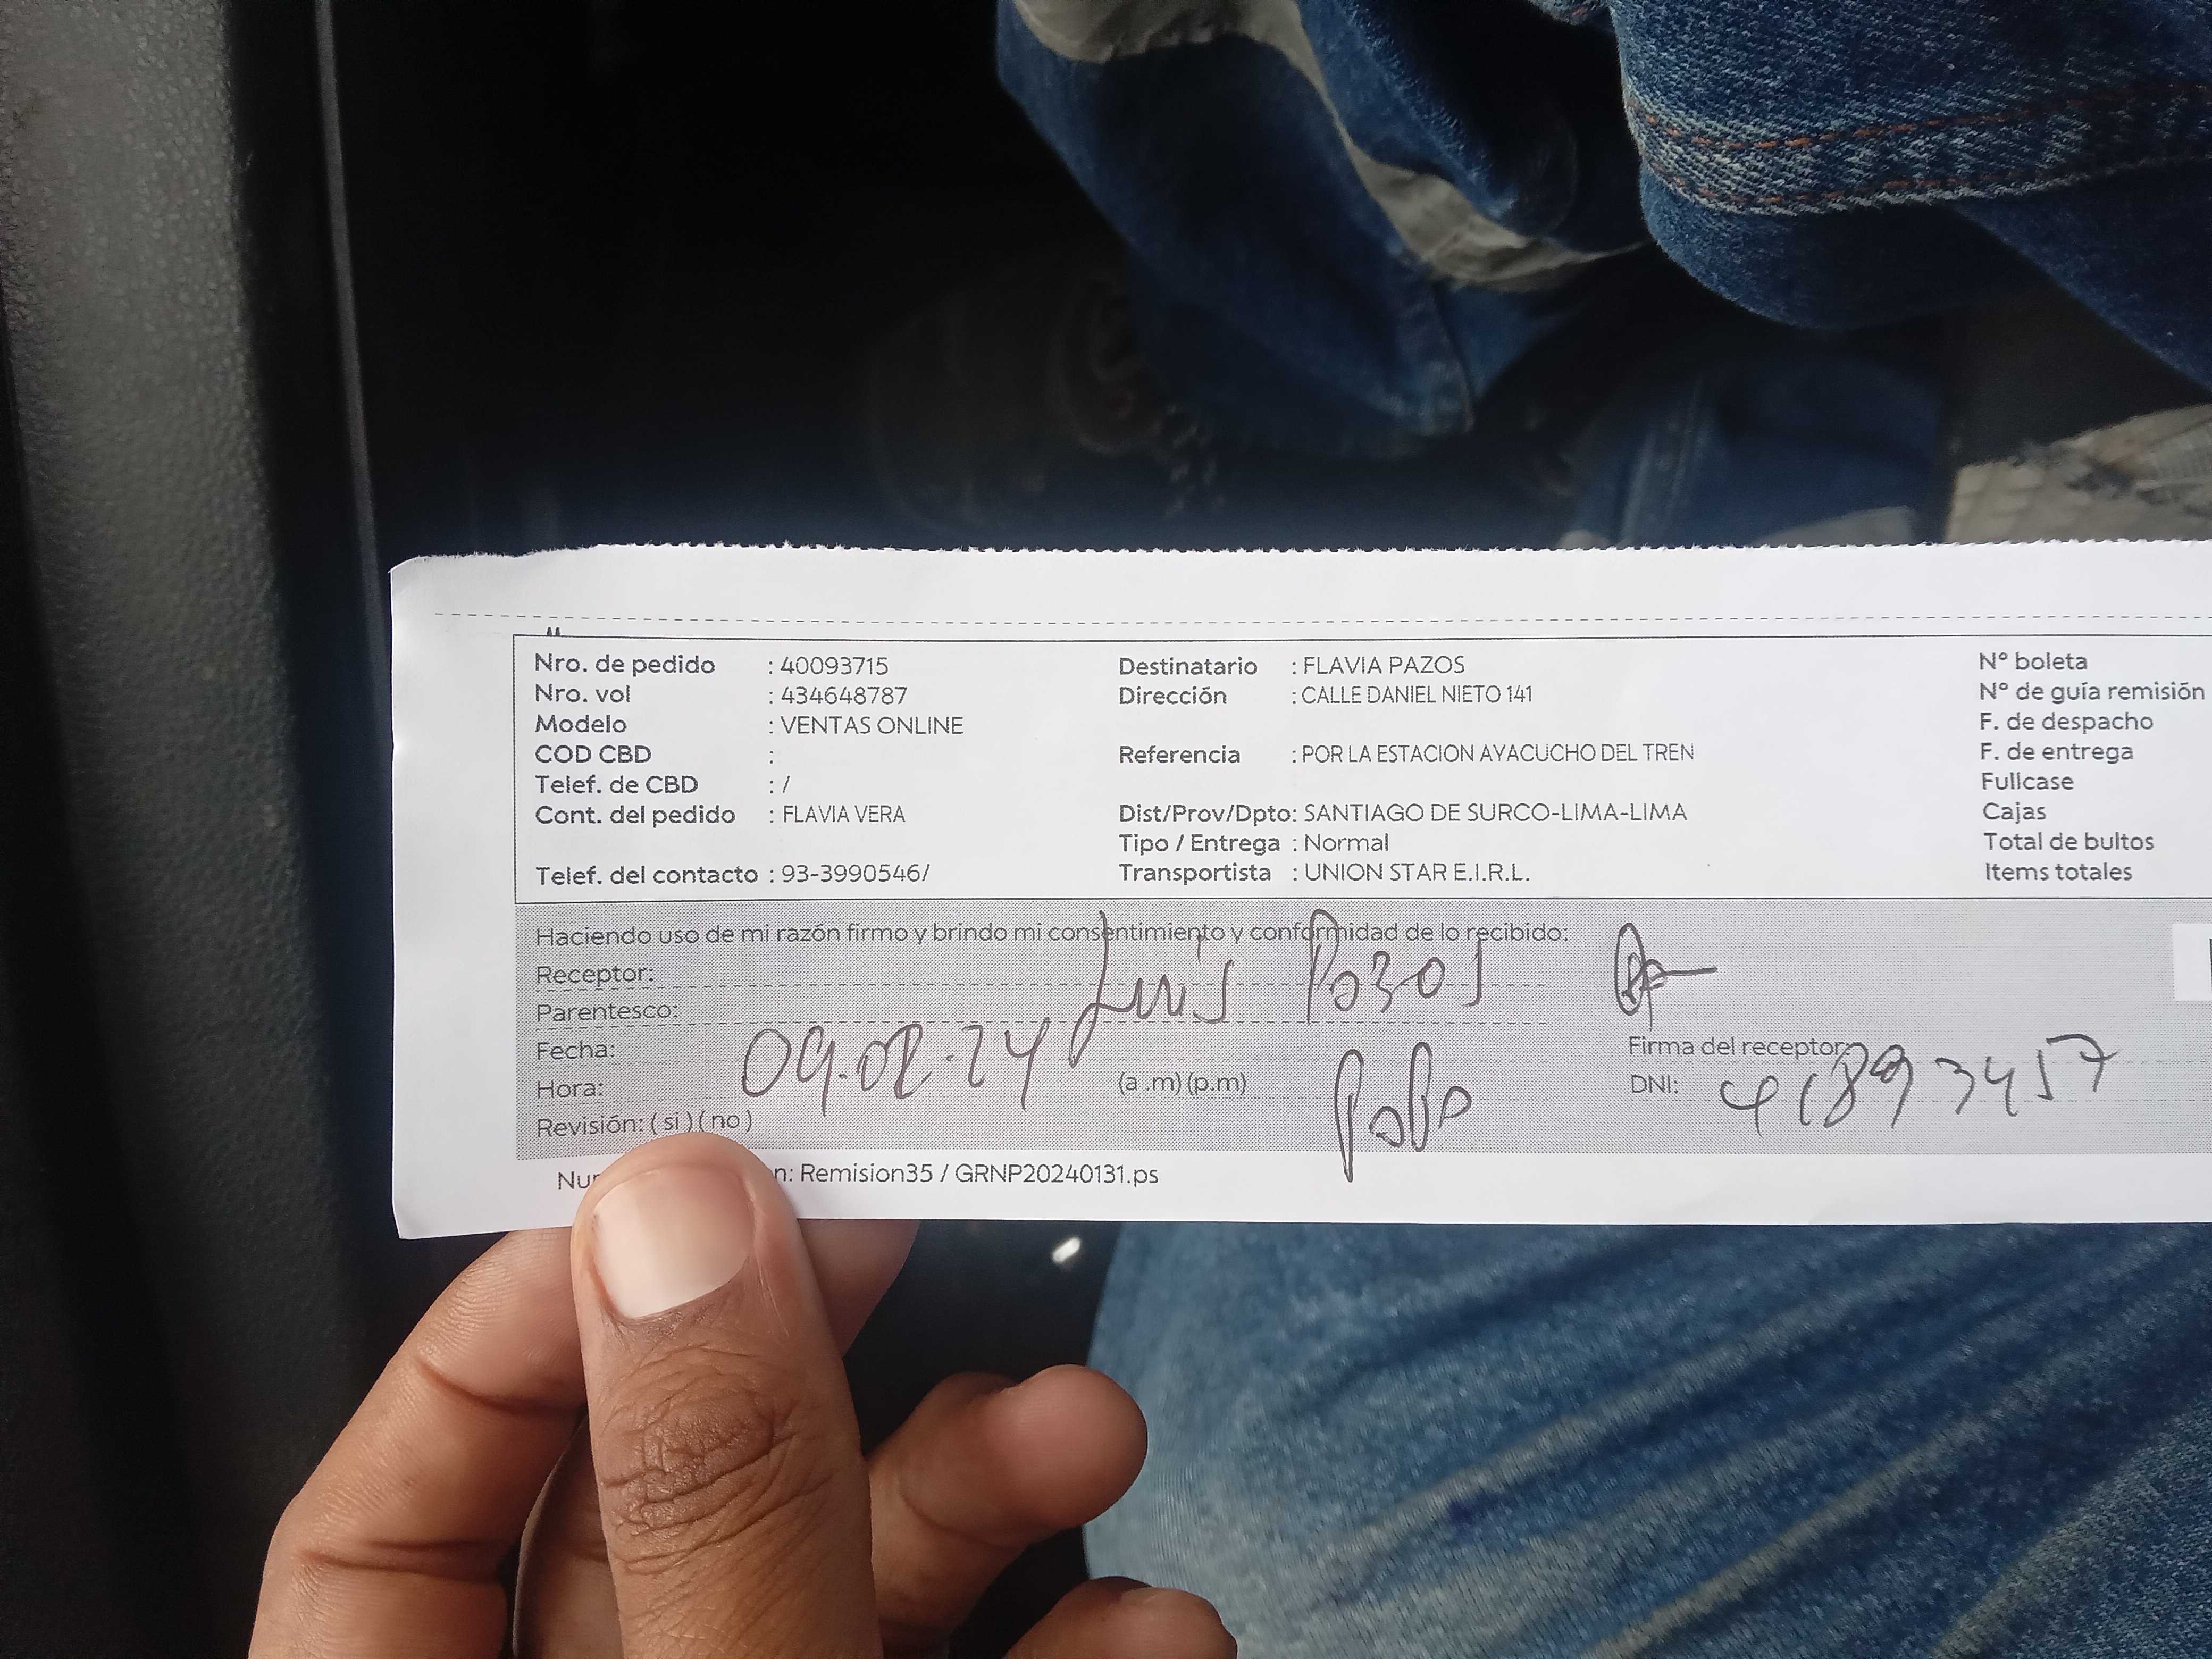 Nro. de pedido : 40093715 Destinatario : FLAVIA PAZOS N° boleta
Nro. vol : 434648787 Dirección : CALLE DANIEL NIETO 141 N° de guía remisión
Modelo : VENTAS ONLINE F. de despacho
COD CBD : Referencia : POR LA ESTACION AYACUCHO DEL TREN F. de entrega
Telef. de CBD : / Fullcase
Cont. del pedido : FLAVIA VERA Dist/Prov/Dpto: SANTIAGO DE SURCO-LIMA-LIMA Cajas
Tipo / Entrega : Normal Total de bultos
Telef. del contacto : 93-3990546/ Transportista : UNION STAR E.I.R.L. Items totales
Haciendo uso de mi razón firmo y brindo mi consentimiento y conformidad de lo recibido:
Receptor: Luis Pazos
Parentesco:
Fecha: 09.02.24 Firma del receptor:
Hora: (a .m) (p.m) Papa DNI: 41893457
Revisión: ( si ) ( no )
n: Remision35 / GRNP20240131.ps